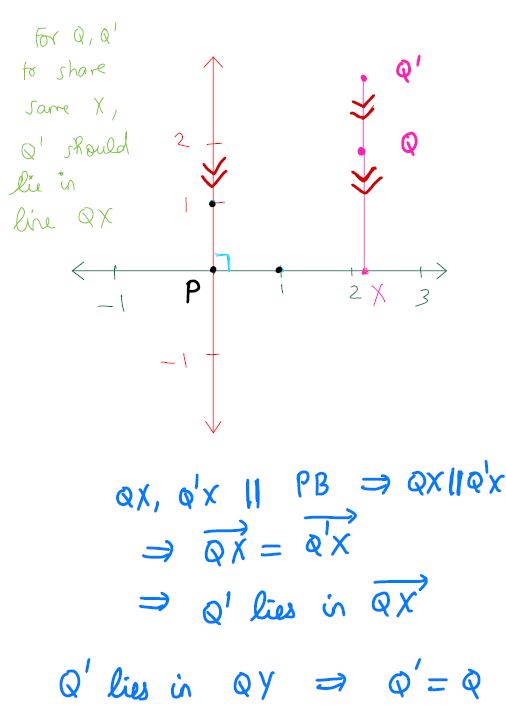 For Q, Q'
to share
same X,
Q' should
lie in
line QX
Q'
2
Q
1
P
-1
1
2
X
3
-1
QX, Q'X || PB ⇒ QX||Q'X
⇒ \overrightarrow{QX} = \overrightarrow{Q'X}
⇒ Q' lies in \overrightarrow{QX}
Q' lies in QY ⇒ Q' = Q